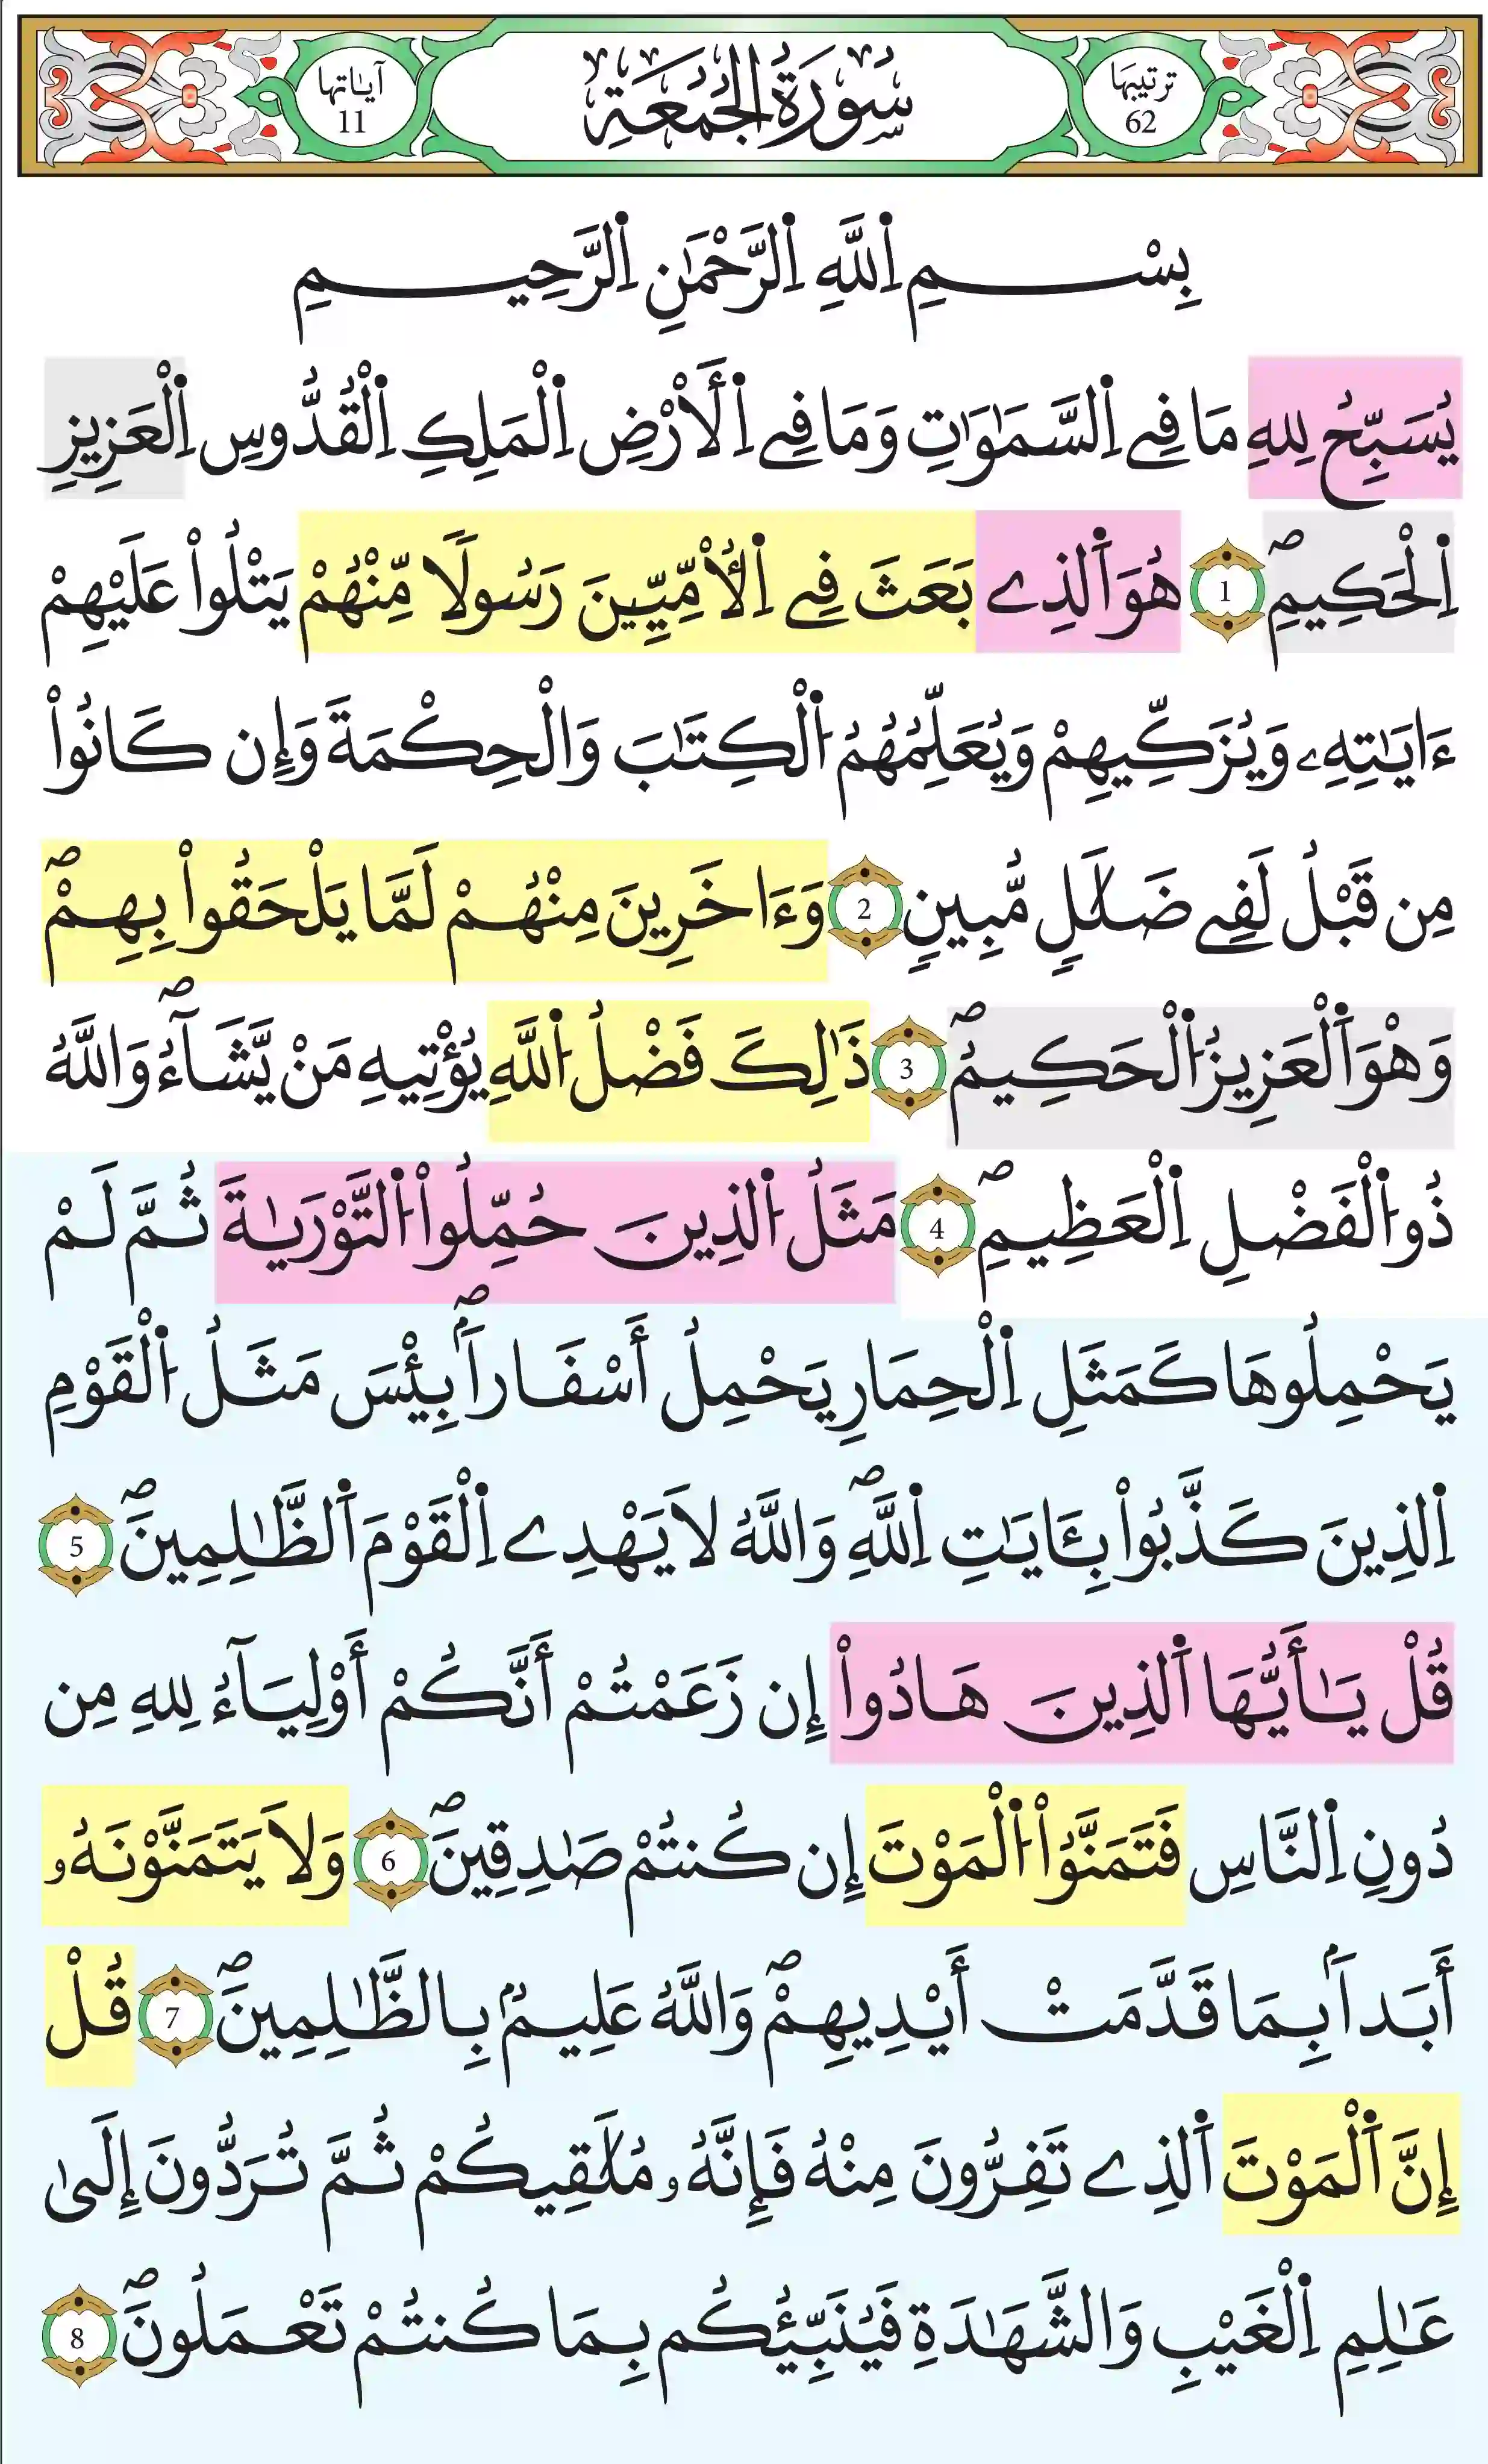 ترتيبها
62
سُورَةُ الجُمُعَةِ
آياتها
11
بِسْمِ اِ۬للَّهِ اِ۬لرَّحْمَٰنِ اِ۬لرَّحِيمِ
يُسَبِّحُ لِلهِ مَا فِے اِ۬لسَّمَٰوَٰتِ وَمَا فِے اِ۬لَارْضِ اِ۬لْمَلِكِ اِ۬لْقُدُّوسِ اِ۬لْعَزِيزِ
اِ۬لْحَكِيمِۖ 1 هُوَ اَ۬لذِے بَعَثَ فِے اِ۬لُامِّيِّـۧنَ رَسُولاٗ مِّنْهُمْ يَتْلُواْ عَلَيْهِمْ
ءَايَٰتِهِۦ وَيُزَكِّيهِمْ وَيُعَلِّمُهُمُ اُ۬لْكِتَٰبَ وَالْحِكْمَةَ وَإِن كَانُواْ
مِن قَبْلُ لَفِے ضَلَٰلٖ مُّبِينٖ 2 وَءَاخَرِينَ مِنْهُمْ لَمَّا يَلْحَقُواْ بِهِمْۖ
وَهْوَ اَ۬لْعَزِيزُ اُ۬لْحَكِيمُۖ 3 ذَٰلِكَ فَضْلُ اُ۬للَّهِ يُؤْتِيهِ مَنْ يَّشَآءُۖ وَاللَّهُ
ذُو اُ۬لْفَضْلِ اِ۬لْعَظِيمِۖ 4 مَثَلُ اُ۬لذِينَ حُمِّلُواْ اُ۬لتَّوْرَيٰةَ ثُمَّ لَمْ
يَحْمِلُوهَا كَمَثَلِ اِ۬لْحِمَارِ يَحْمِلُ أَسْفَاراَۢۖ بِيْسَ مَثَلُ اُ۬لْقَوْمِ
اِ۬لذِينَ كَذَّبُواْ بِـَٔايَٰتِ اِ۬للَّهِۖ وَاللَّهُ لَا يَهْدِے اِ۬لْقَوْمَ اَ۬لظَّٰلِمِينَۖ 5
قُلْ يَٰأَيُّهَا اَ۬لذِينَ هَادُواْ إِن زَعَمْتُمْ أَنَّكُمْ أَوْلِيَآءُ لِلهِ مِن
دُونِ اِ۬لنَّاسِ فَتَمَنَّوُاْ اُ۬لْمَوْتَ إِن كُنتُمْ صَٰدِقِينَۖ 6 وَلَا يَتَمَنَّوْنَهُۥ
أَبَداَۢ بِمَا قَدَّمَتْ أَيْدِيهِمْۖ وَاللَّهُ عَلِيمُۢ بِالظَّٰلِمِينَۖ 7 قُلْ
إِنَّ اَ۬لْمَوْتَ اَ۬لذِے تَفِرُّونَ مِنْهُ فَإِنَّهُۥ مُلَٰقِيكُمْ ثُمَّ تُرَدُّونَ إِلَىٰ
عَٰلِمِ اِ۬لْغَيْبِ وَالشَّهَٰدَةِ فَيُنَبِّئُكُم بِمَا كُنتُمْ تَعْمَلُونَۖ 8